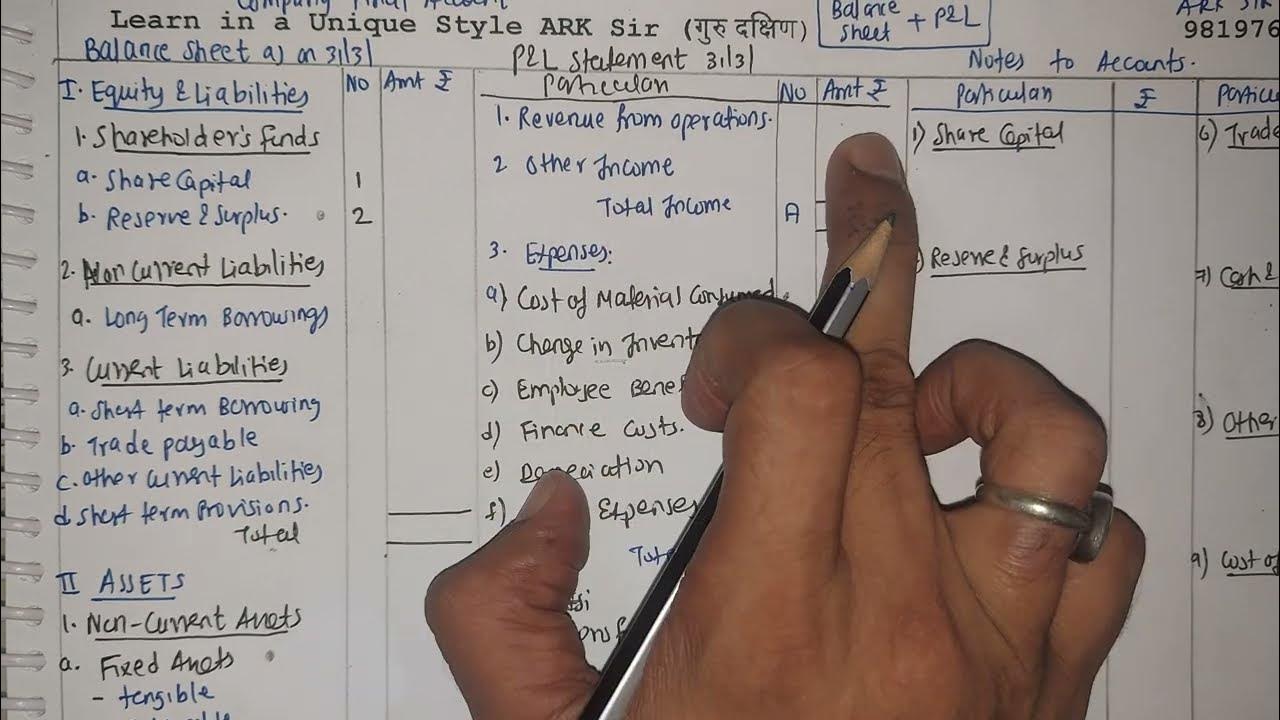 Company Final Account
Learn in a Unique Style ARK Sir (गुरु दक्षिण)
Balance Sheet + P&L
ARK SIR
981976
Balance Sheet as on 31/31
I. Equity & Liabilities No Amt ₹
1. Shareholder's funds
a. Share Capital 1
b. Reserve & Surplus. 2
2. Non Current Liabilities
a. Long Term Borrowings
3. Current Liabilities
a. Short term Borrowing
b. Trade payable
c. Other Current Liabilities
d. Short term Provisions.
Total
II ASSETS
1. Non-Current Assets
a. Fixed Assets
- tangible
P&L Statement 31/31
Particulars No Amt ₹
1. Revenue from operations.
2 Other Income
Total Income A
3. Expenses:
a) Cost of Material Consumed
b) Change in Invent
c) Employee Benef
d) Finance Costs.
e) Depreciation
f) Expenses
Tot
Notes to Accounts.
Particulars ₹
1) Share Capital
) Reserve & Surplus
Particu
6) Trade
7) Cash &
8) Other
9) Cost of